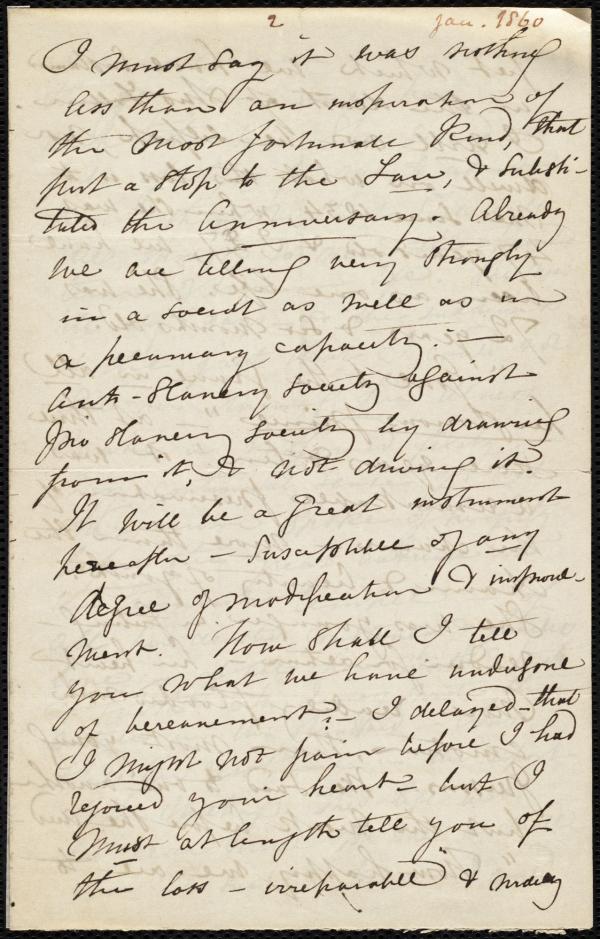 2
Jan. 1860
I must say it was nothing
less than an inspiration of
the most fortunate kind, that
put a stop to the Law, & substi-
tuted the Anniversary. Already
we are telling very strongly
in a social as well as in
a pecuniary capacity: —
Anti-Slavery Society against
Pro Slavery Society by drawing
from it, & not driving it.
It will be a great instrument
hereafter – susceptible of any
degree of modification & improve-
ment. How shall I tell
you what we have undergone
of bereavement? – I delayed – that
I might not pain before I had
rejoiced your heart – but I
must at length tell you of
the loss – irreparable &